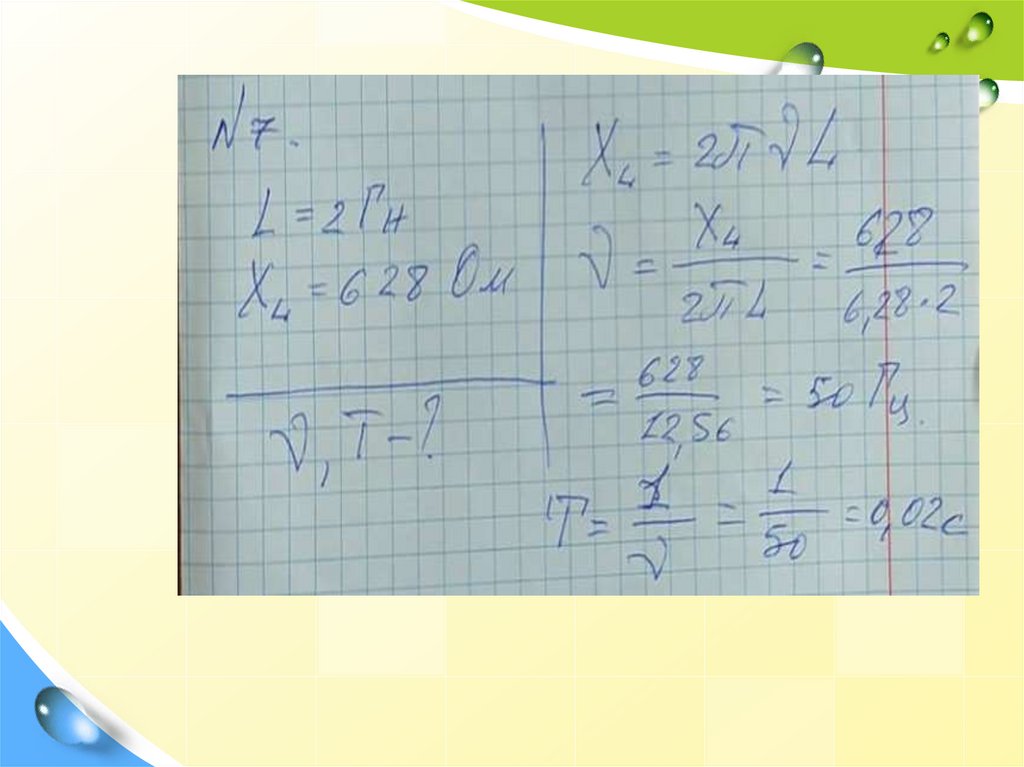 N7.
L = 2 Гн
X₄ = 628 Ом
ν, T - ?
X₄ = 2π ν L
ν = X₄ / 2π L = 628 / 6,28 · 2
= 628 / 12,56 = 50 Гц.
T = 1 / ν = 1 / 50 = 0,02 с